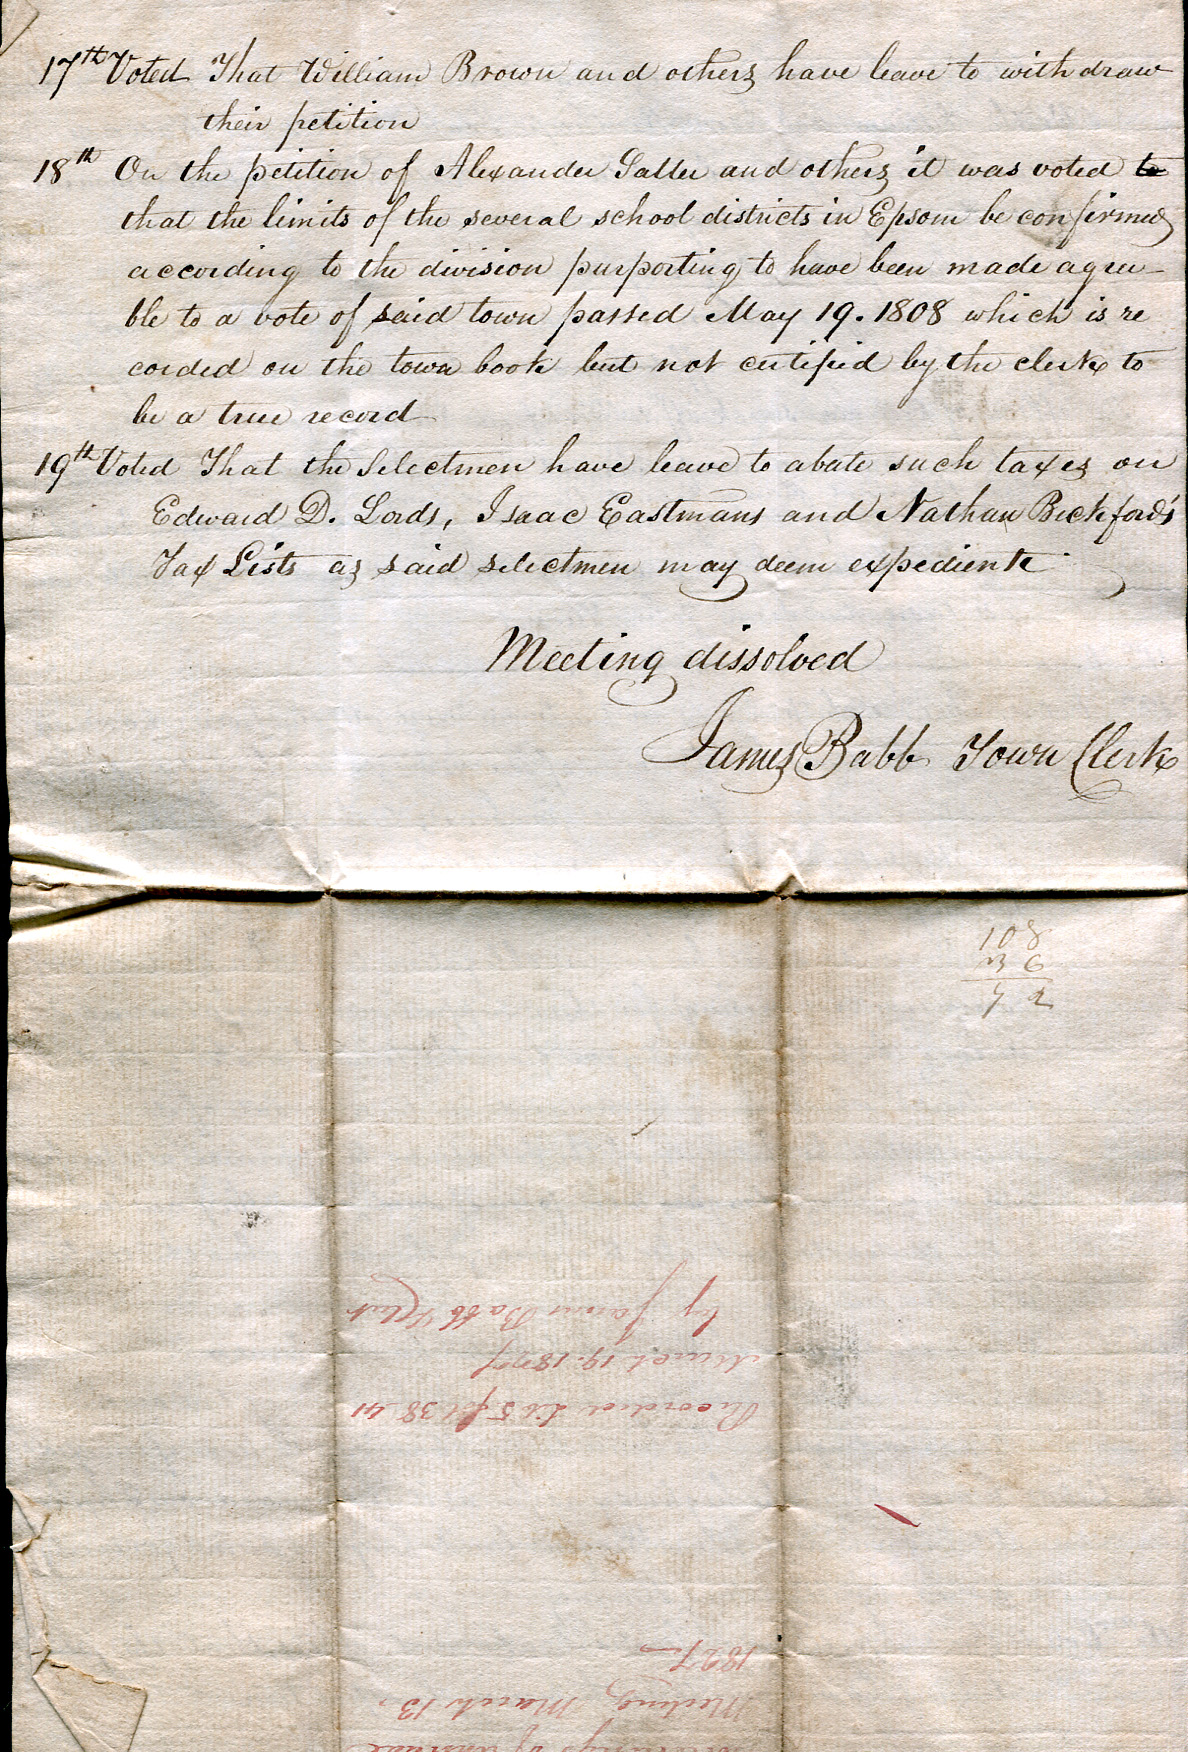 17th Voted That William Brown and others have leave to withdraw
their petition
18th On the petition of Alexander Salter and others it was voted to
that the limits of the several school districts in Epsom be confirmed
according to the division purporting to have been made agree-
ble to a vote of said town passed May 19. 1808 which is re
corded on the town book but not certified by the clerk to
be a true record
19th Voted That the Selectmen have leave to abate such taxes on
Edward D. Lords, Isaac Eastmans and Nathan Bickford's
Tax Lists as said selectmen may deem expedient
Meeting dissolved
James Babb Town Clerk
108
36
72
Meeting March 13.
1827
Recorded Lib 5 fol 38-41
March 19. 1827
by James Babb Clerk